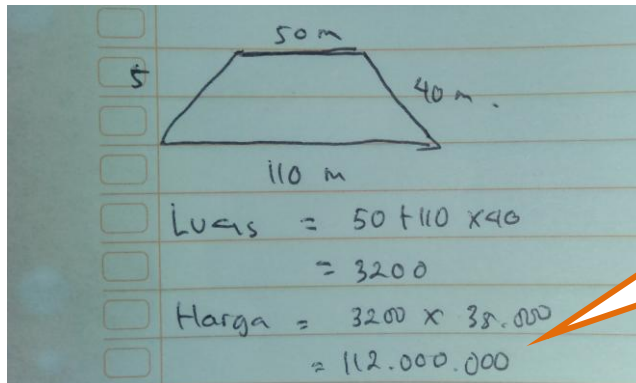 50 m
5
40 m.
110 m
Luas = 50 + 110 x 40
= 3200
Harga = 3200 x 35.000
= 112.000.000